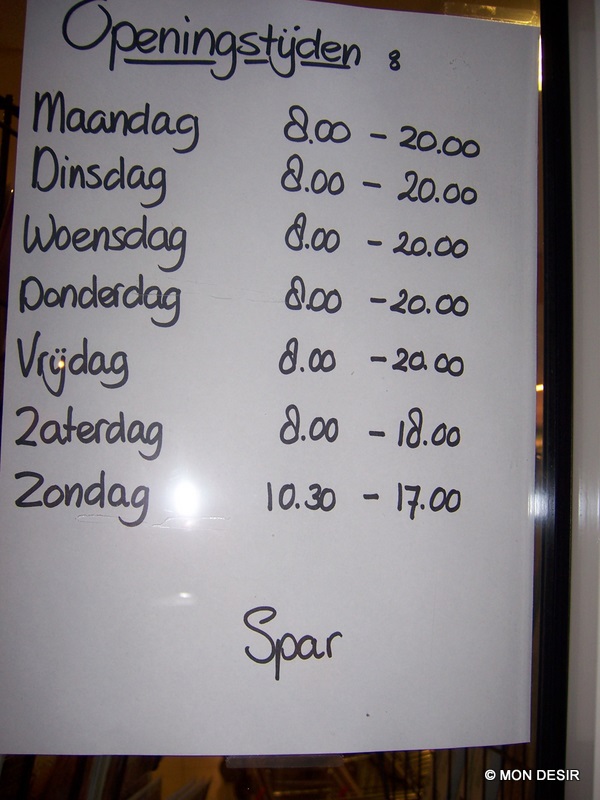 Openingstijden :
Maandag 8.00 - 20.00
Dinsdag 8.00 - 20.00
Woensdag 8.00 - 20.00
Donderdag 8.00 - 20.00
Vrijdag 8.00 - 20.00
Zaterdag 8.00 - 18.00
Zondag 10.30 - 17.00
Spar
© MON DESIR